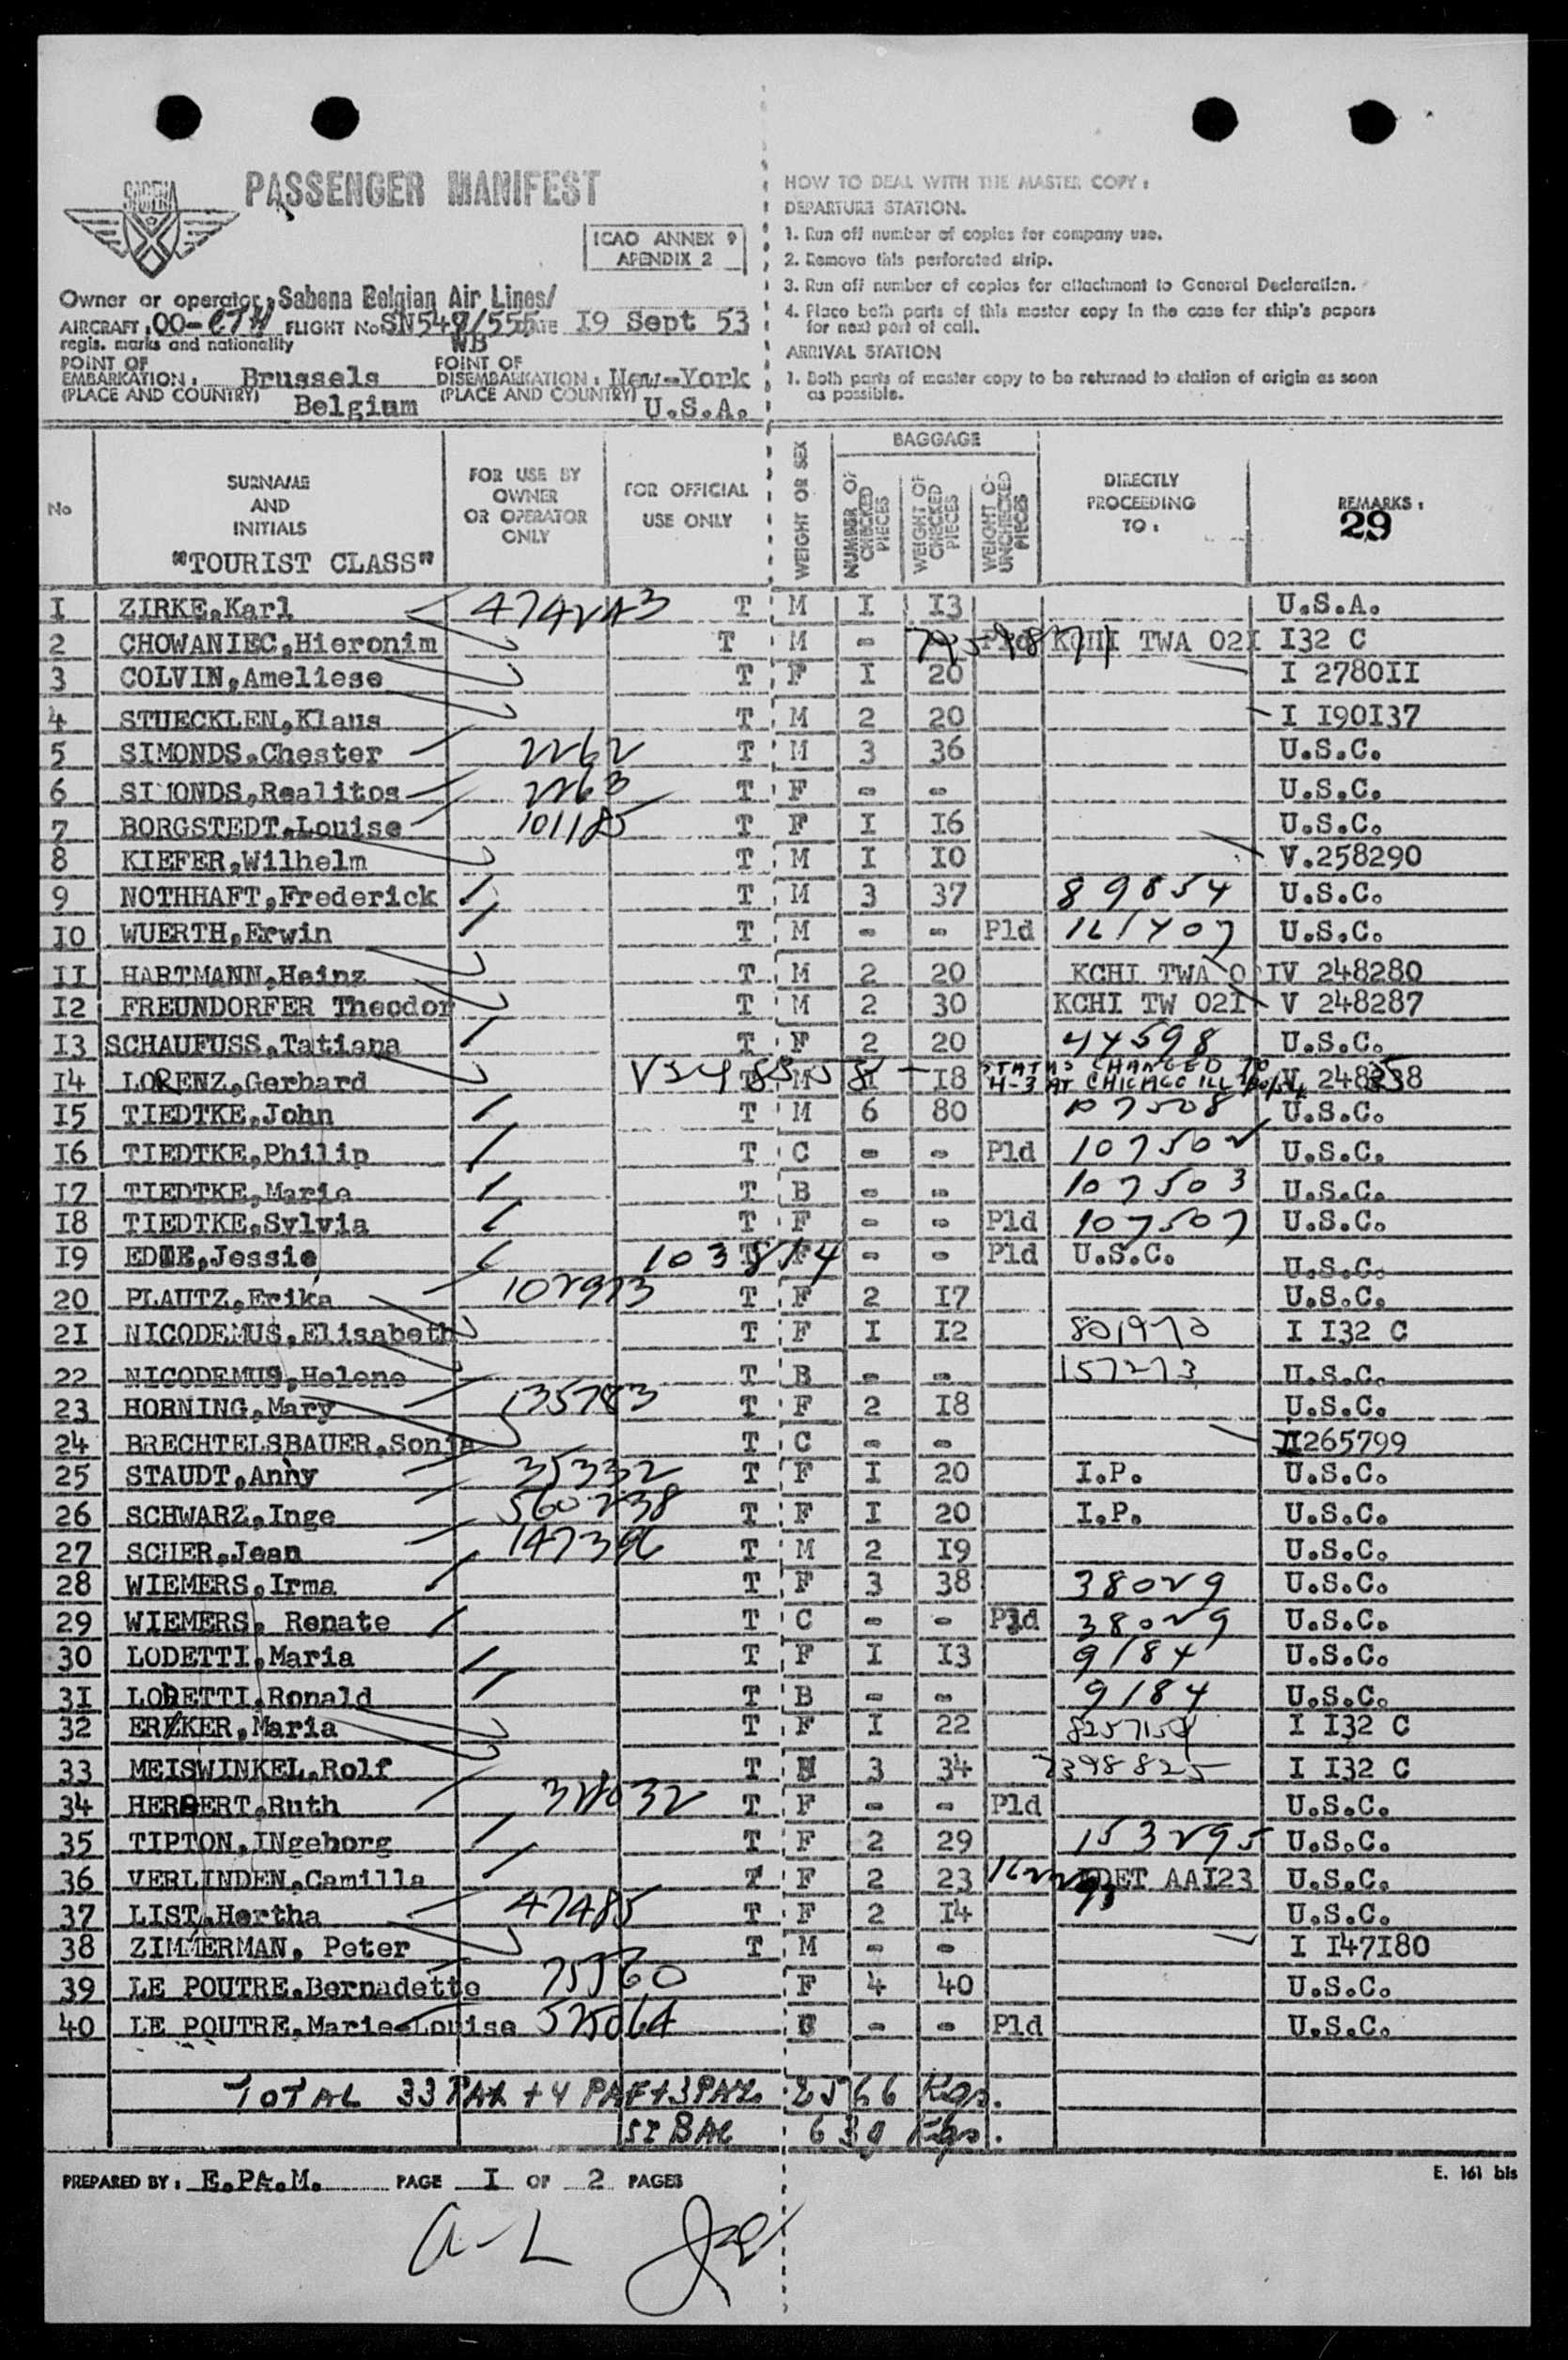 SABENA
PASSENGER MANIFEST
ICAO ANNEX 9
APENDIX 2
Owner or operator: Sabena Belgian Air Lines/
AIRCRAFT: OO-CTH FLIGHT No SN549/555 DATE I9 Sept 53
regis. marks and nationality WB
POINT OF EMBARKATION: Brussels POINT OF DISEMBARKATION: New-York
(PLACE AND COUNTRY) Belgium (PLACE AND COUNTRY) U.S.A.
HOW TO DEAL WITH THE MASTER COPY:
DEPARTURE STATION.
1. Run off number of copies for company use.
2. Remove this perforated strip.
3. Run off number of copies for attachment to General Declaration.
4. Place both parts of this master copy in the case for ship's papers
for next port of call.
ARRIVAL STATION
1. Both parts of master copy to be returned to station of origin as soon
as possible.
No
SURNAME
AND
INITIALS
"TOURIST CLASS"
FOR USE BY
OWNER
OR OPERATOR
ONLY
FOR OFFICIAL
USE ONLY
WEIGHT OR SEX
BAGGAGE
NUMBER OF
CHECKED
PIECES
WEIGHT OF
CHECKED
PIECES
WEIGHT OF
UNCHECKED
PIECES
DIRECTLY
PROCEEDING
TO:
REMARKS:
29
I ZIRKE,Karl T M I I3 U.S.A.
2 CHOWANIEC,Hieronim T M - Pld KCHI TWA 02I I32 C
3 COLVIN,Ameliese T F I 20 I 2780II
4 STUECKLEN,Klaus T M 2 20 I I90I37
5 SIMONDS,Chester 2262 T M 3 36 U.S.C.
6 SIMONDS,Realitos 2263 T F - - U.S.C.
7 BORGSTEDT,Louise 101185 T F I I6 U.S.C.
8 KIEFER,Wilhelm T M I I0 V.258290
9 NOTHHAFT,Frederick T M 3 37 89854 U.S.C.
I0 WUERTH,Erwin T M - - Pld 161407 U.S.C.
II HARTMANN,Heinz T M 2 20 KCHI TWA 0 IV 248280
I2 FREUNDORFER Theodor T M 2 30 KCHI TW 02I V 248287
I3 SCHAUFUSS,Tatiana T F 2 20 44598 U.S.C.
I4 LORENZ,Gerhard T M I8 STATUS CHANGED TO H-3 AT CHICAGO ILL V 248258
I5 TIEDTKE,John T M 6 80 107508 U.S.C.
I6 TIEDTKE,Philip T C - - Pld 107502 U.S.C.
I7 TIEDTKE,Marie T B - - 107503 U.S.C.
I8 TIEDTKE,Sylvia T F - - Pld 107507 U.S.C.
I9 EDIE,Jessie 103814 T F - - Pld U.S.C. U.S.C.
20 PLAUTZ,Erika 102973 T F 2 I7 U.S.C.
2I NICODEMUS,Elisabeth T F I I2 801970 I I32 C
22 NICODEMUS,Helene T B - - 157273 U.S.C.
23 HORNING,Mary 135783 T F 2 I8 U.S.C.
24 BRECHTELSBAUER,Sonja T C - - II265799
25 STAUDT,Anny 35332 T F I 20 I.P. U.S.C.
26 SCHWARZ,Inge 560238 T F I 20 I.P. U.S.C.
27 SCHER,Jean 147396 T M 2 I9 U.S.C.
28 WIEMERS,Irma T F 3 38 38029 U.S.C.
29 WIEMERS, Renate T C - - Pld 38029 U.S.C.
30 LODETTI,Maria T F I I3 9184 U.S.C.
3I LODETTI,Ronald T B - - 9184 U.S.C.
32 ERZKER,Maria T F I 22 8257154 I I32 C
33 MEISWINKEL,Rolf T M 3 34 7398825 I I32 C
34 HERBERT,Ruth T F - - Pld U.S.C.
35 TIPTON,INgeborg T F 2 29 153295 U.S.C.
36 VERLINDEN,Camilla T F 2 23 IDET AAI23 U.S.C.
37 LIST,Hertha 47485 T F 2 I4 U.S.C.
38 ZIMMERMAN, Peter T M - - I I47I80
39 LE POUTRE,Bernadette 75560 F 4 40 U.S.C.
40 LE POUTRE,Marie-Louise 525064 C - - Pld U.S.C.
TOTAL 33 PAX + 4 PAX + 3 PAX 2566 Kgs.
51 BAG 630 Kgs.
PREPARED BY: E.PA.M. PAGE I OF 2 PAGES
E. 161 bis